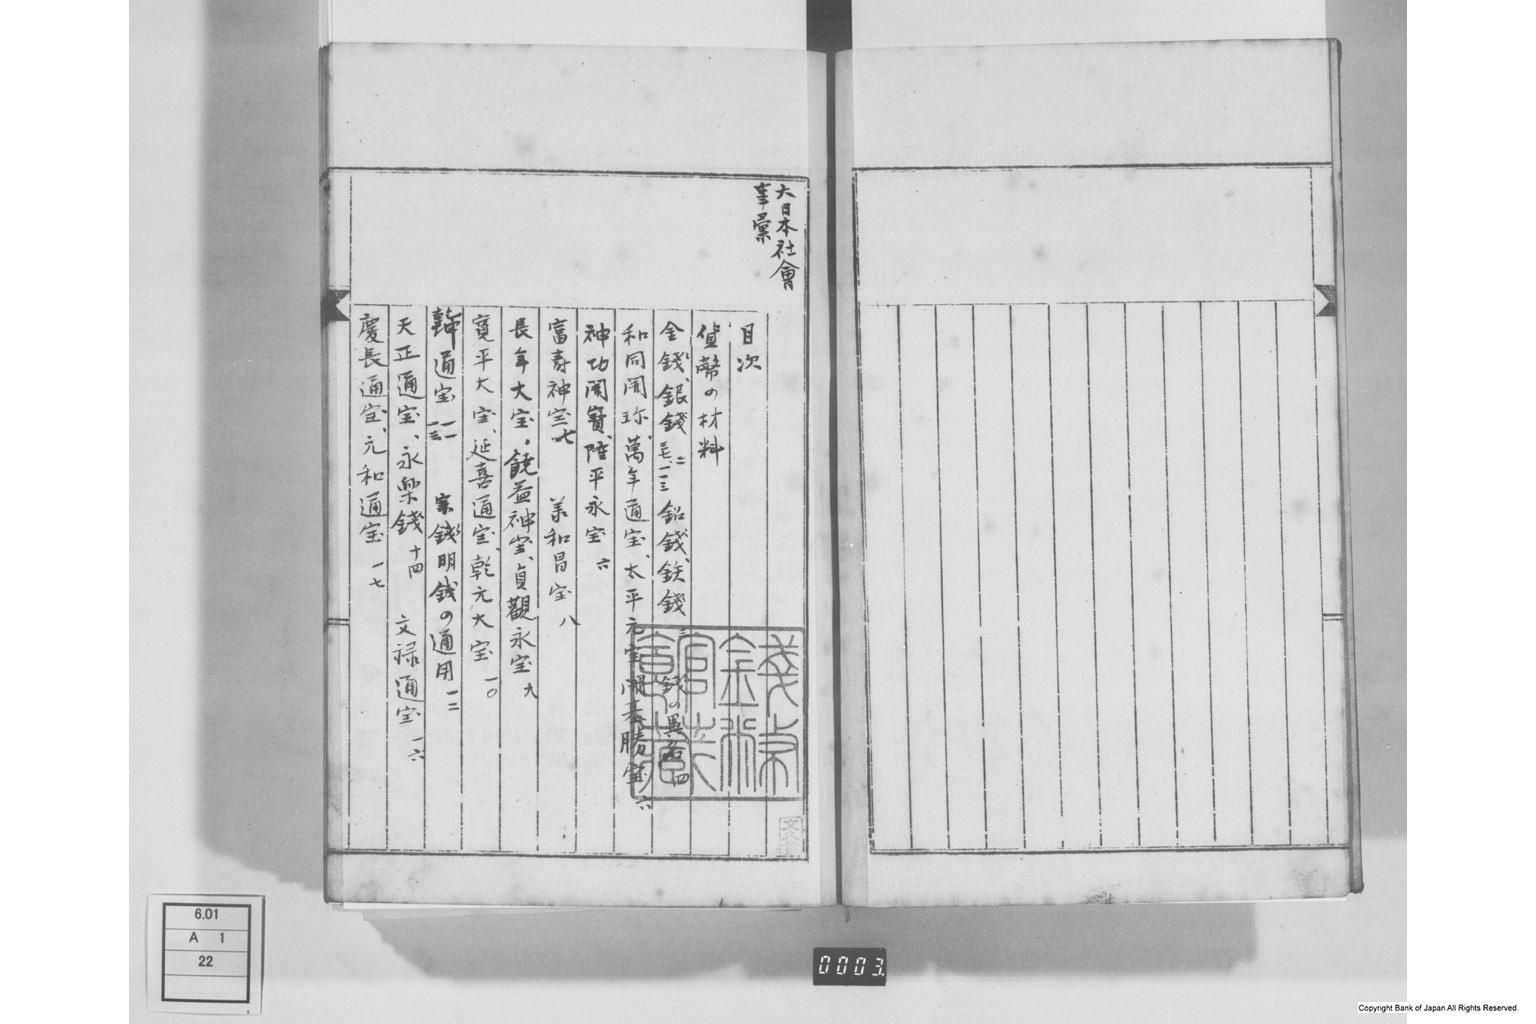 大日本社會
事彙
目次
貨幣の材料
金錢、銀錢 二 鉛錢、鉄錢 三 錢の異名 四
和同開珎、萬年通宝、太平元宝 開基勝宝 六
神功開寶、隆平永宝 六
富寿神宝 七 羕和昌宝 八
長年大宝、饒益神宝、貞觀永宝 九
寛平大宝、延喜通宝、乾元大宝 一〇
乾坤通宝 一一 宋錢明銭の通用 一二
天正通宝、永楽錢 十四 文禄通宝 一六
慶長通宝、元和通宝 一七
錢幣
金糸
官
6.01
A 1
22
0003
Copyright Bank of Japan All Rights Reserved.